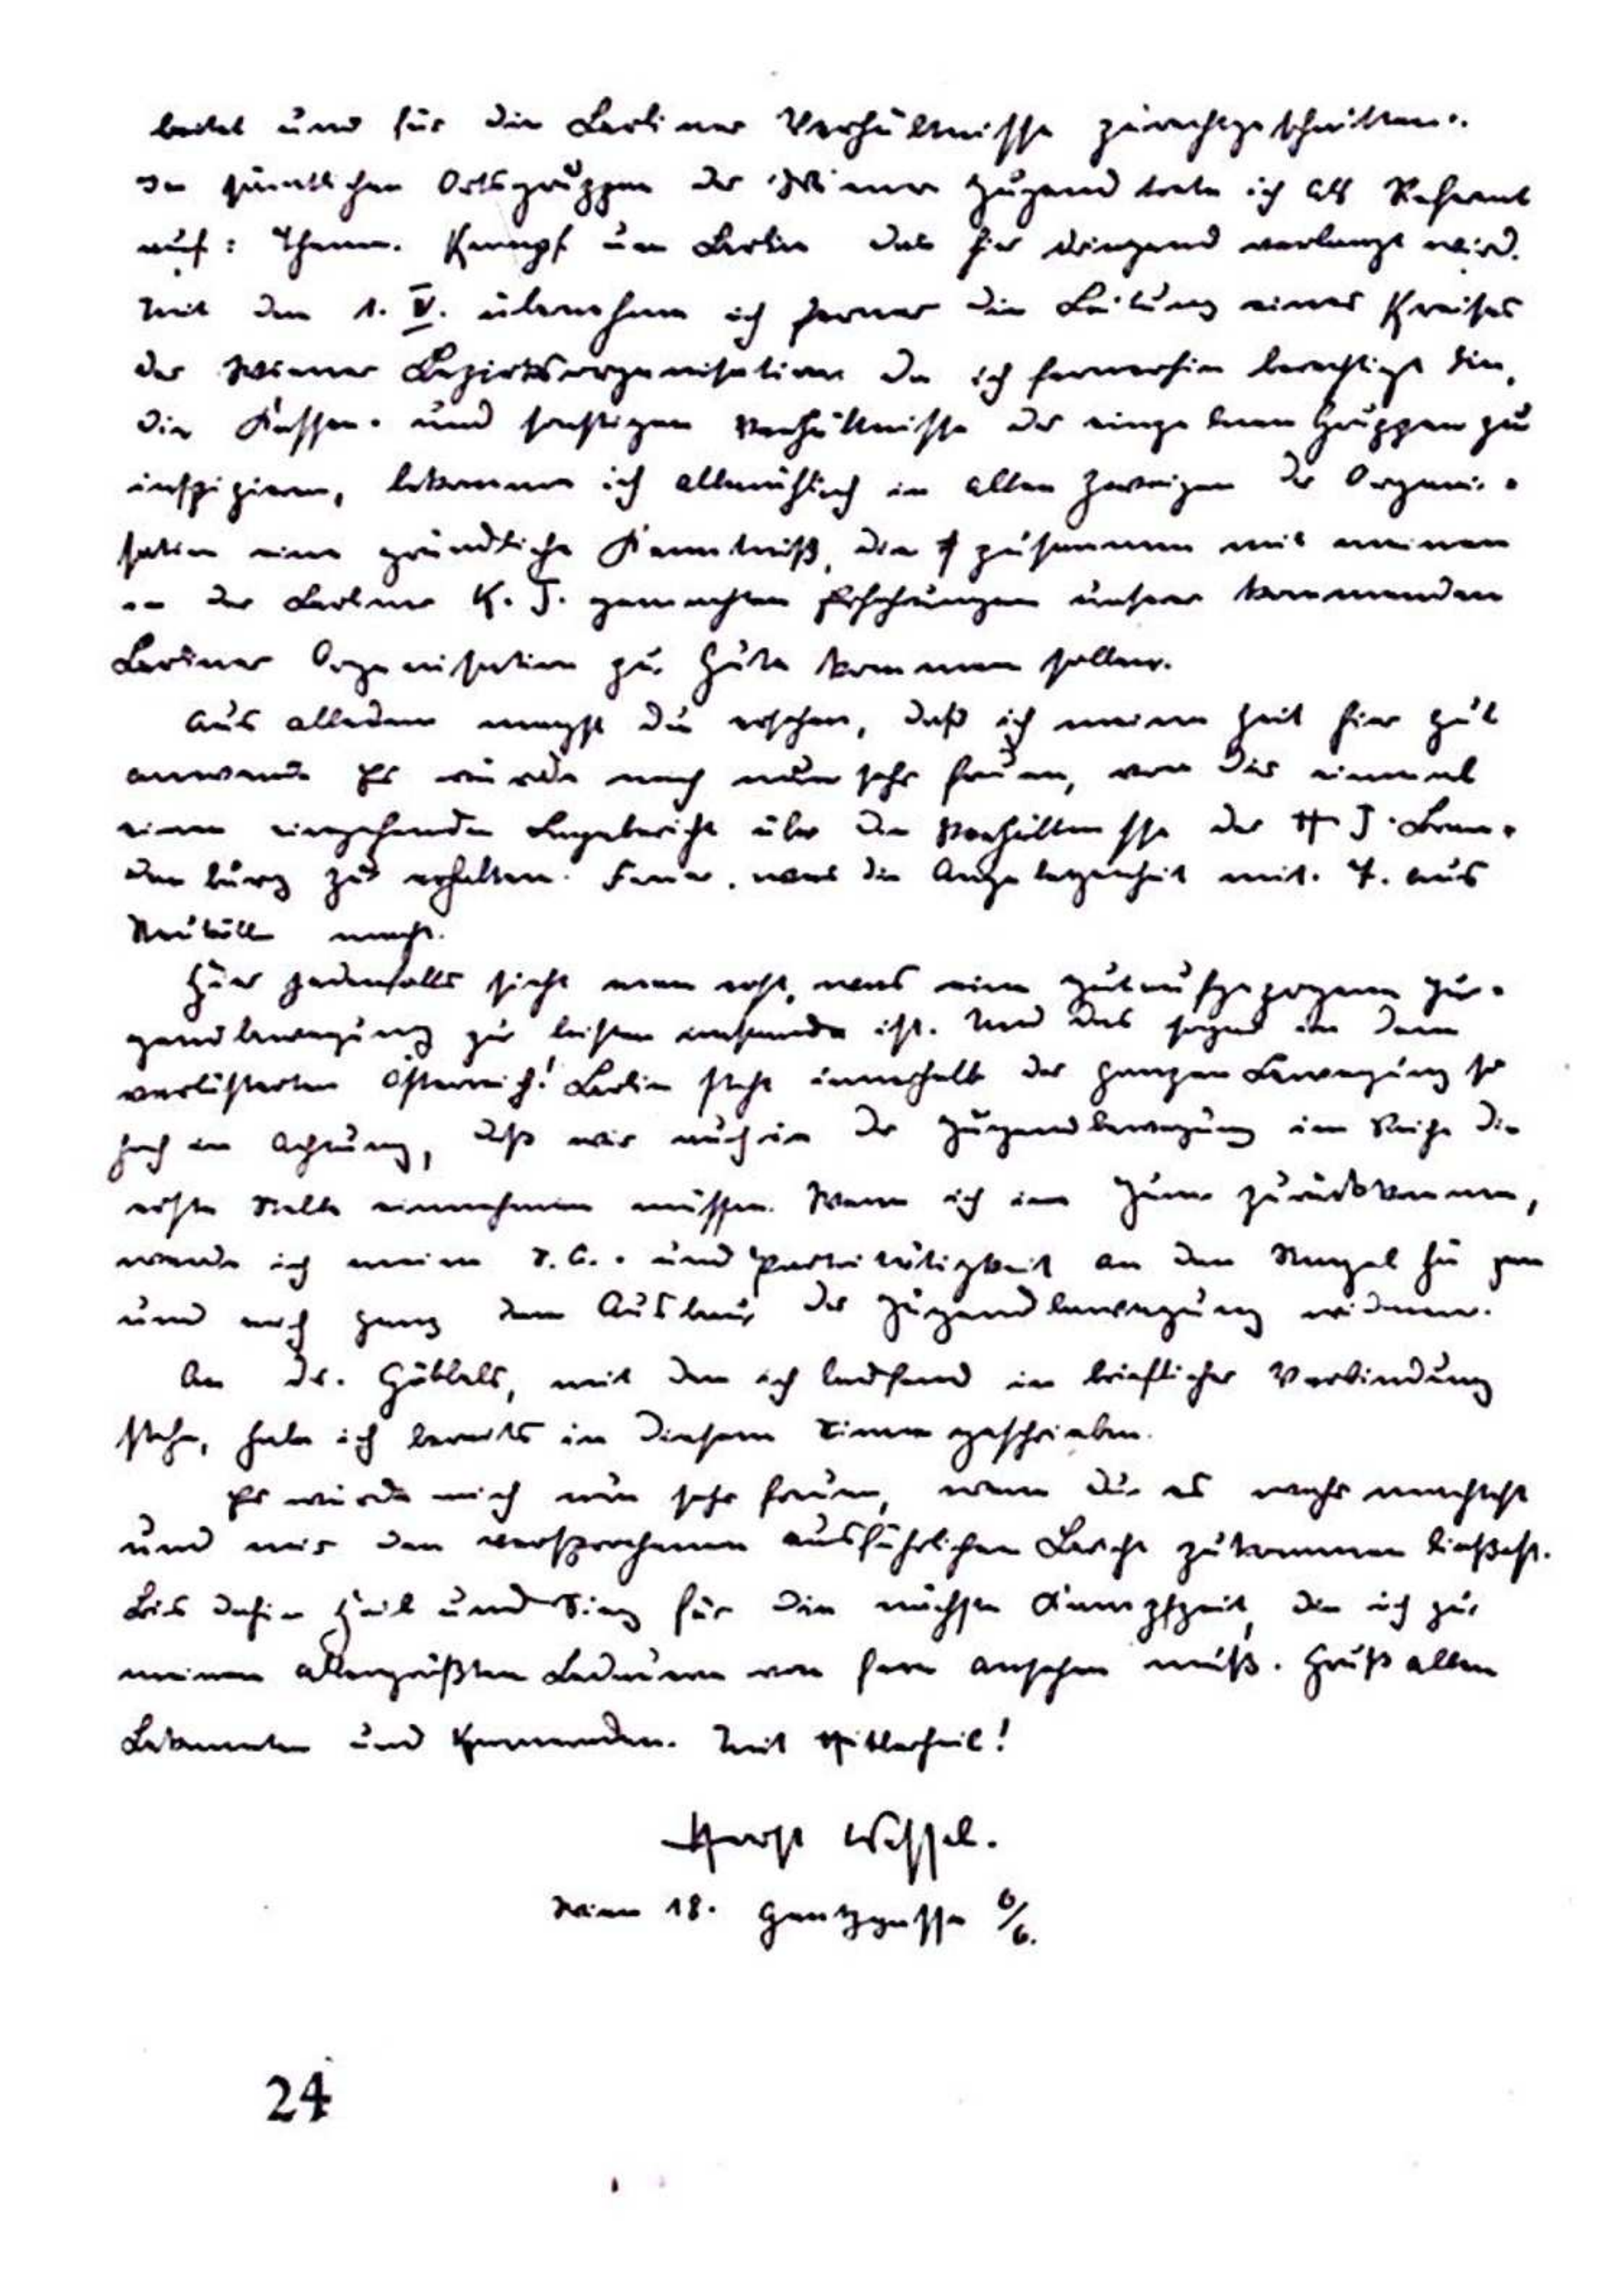 beitet und für die Berliner Verhältnisse zurechtgeschnitten.
In sämtlichen Ortsgruppen der Wiener Jugend trete ich als Referent
auf: Thema. Kampf um Berlin das hier dringend verlangt wird.
Mit dem 1. V. übernehme ich ferner die Leitung eines Kreises
der Wiener Bezirksorganisation da ich fernerhin berechtigt bin,
die Kassen- und sonstigen Verhältnisse der einzelnen Gruppen zu
inspizieren, bekomme ich allmählich in allen Zweigen der Organi-
sation eine gründliche Kenntniß, die zusammen mit meinen
in der Berliner H. J. gemachten Erfahrungen unserer kommenden
Berliner Organisation zu Gute kommen sollen.
Aus alledem magst Du ersehen, daß ich meine Zeit hier gut
anwende Es würde mich nun sehr freuen, von Dir einmal
einen eingehenden Lagebericht über die Verhältnisse der H J. Bran-
denburg zu erhalten. Ferner, was die Angelegenheit mit. T. aus
Neukölln macht.
Hier jedenfalls sieht man erst, was eine gutaufgezogene Ju-
gendbewegung zu leisten imstande ist. Und das sogar in dem
verlästerten Österreich! Berlin steht innerhalb der ganzen Bewegung so
hoch in Achtung, daß wir auch in der Jugendbewegung im Reiche die
erste Stelle einnehmen müssen. Wenn ich im Juni zurückkomme,
werde ich meine S.A.- und Parteitätigkeit an den Nagel hängen
und mich ganz dem Ausbau der Jugendbewegung widmen.
An Dr. Göbbels, mit dem ich laufend in brieflicher Verbindung
stehe, habe ich bereits in diesem Sinne geschrieben.
Es würde mich nun sehr freuen, wenn Du es wahr machtest
und mir den versprochenen ausführlichen Bericht zukommen ließest.
Bis dahin Heil und Sieg für die nächste Kampfzeit, die ich zu
meinem allergrößten Bedauern von fern ansehen muß. Gruß allen
Bekannten und Kameraden. Mit Hitlerheil!
Horst Wessel.
Wien 18. Gentzgasse 6/6.
24